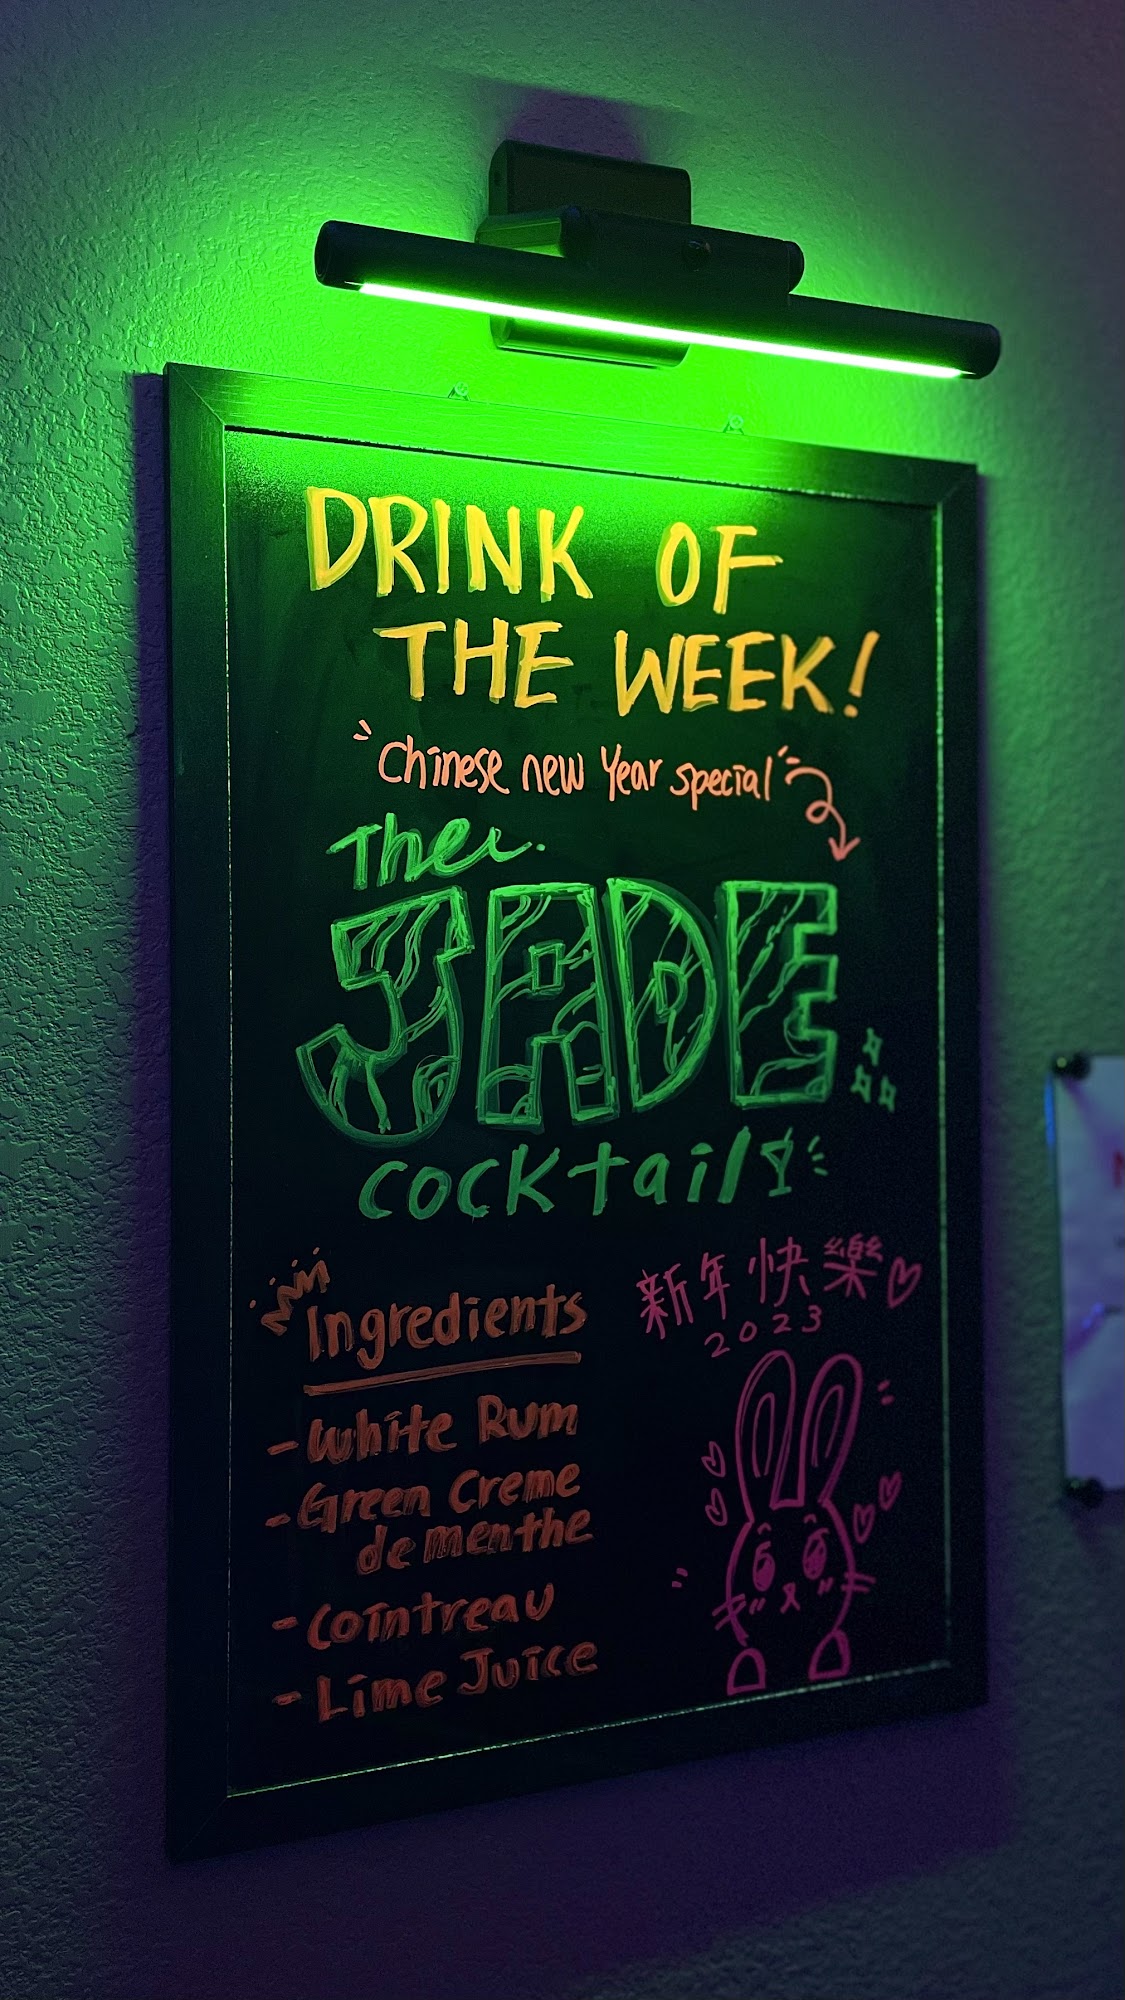 DRINK OF
THE WEEK!
"Chinese new Year special"
The
JADE
cocktail
Ingredients
- White Rum
- Green Creme
de menthe
- Cointreau
- Lime Juice
新年快樂
2023